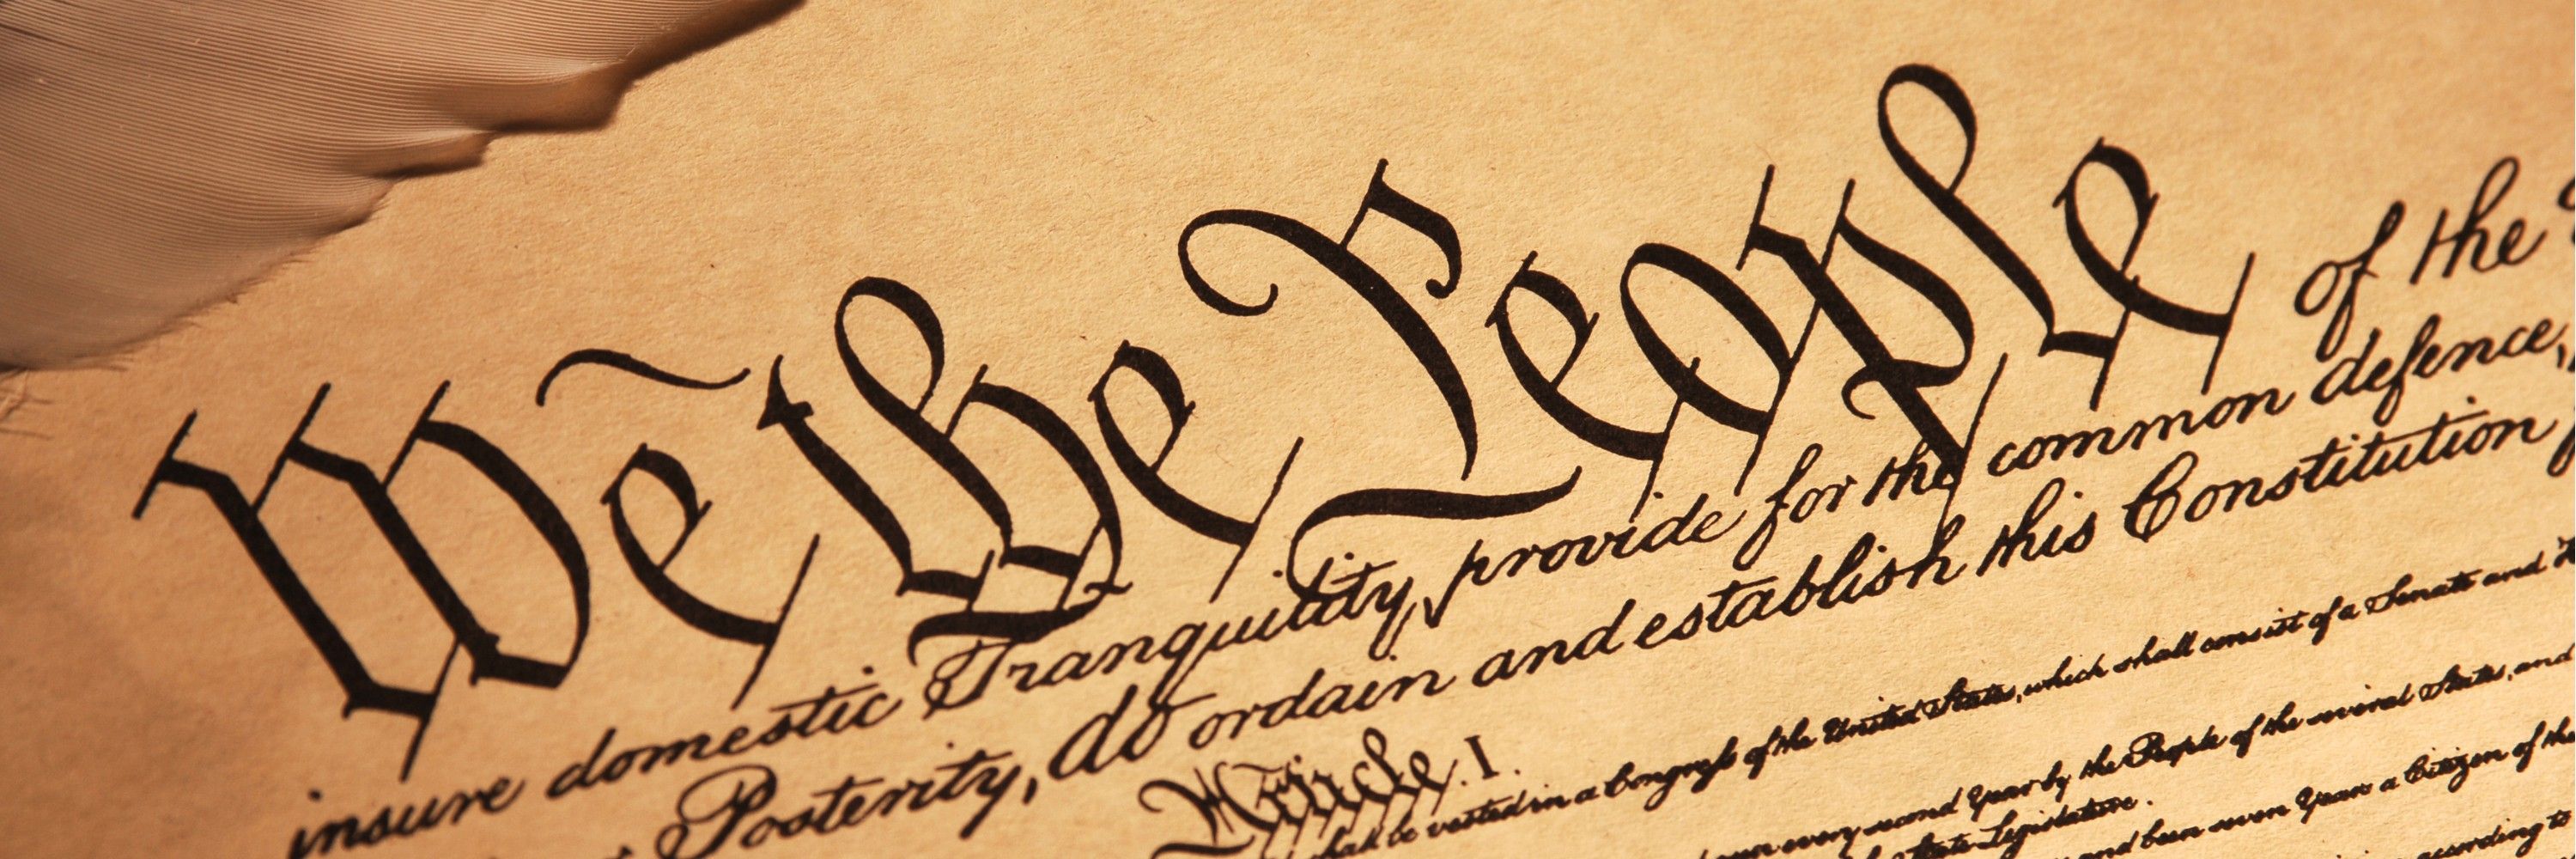 We the People of the
insure domestic Tranquility, provide for the common defence,
Posterity, do ordain and establish this Constitution
Article. I.
shall be vested in a Congress of the United States, which shall consist of a Senate and
every second Year by the People of the several States, and
State Legislature.
and been seven Years a Citizen of the
according to